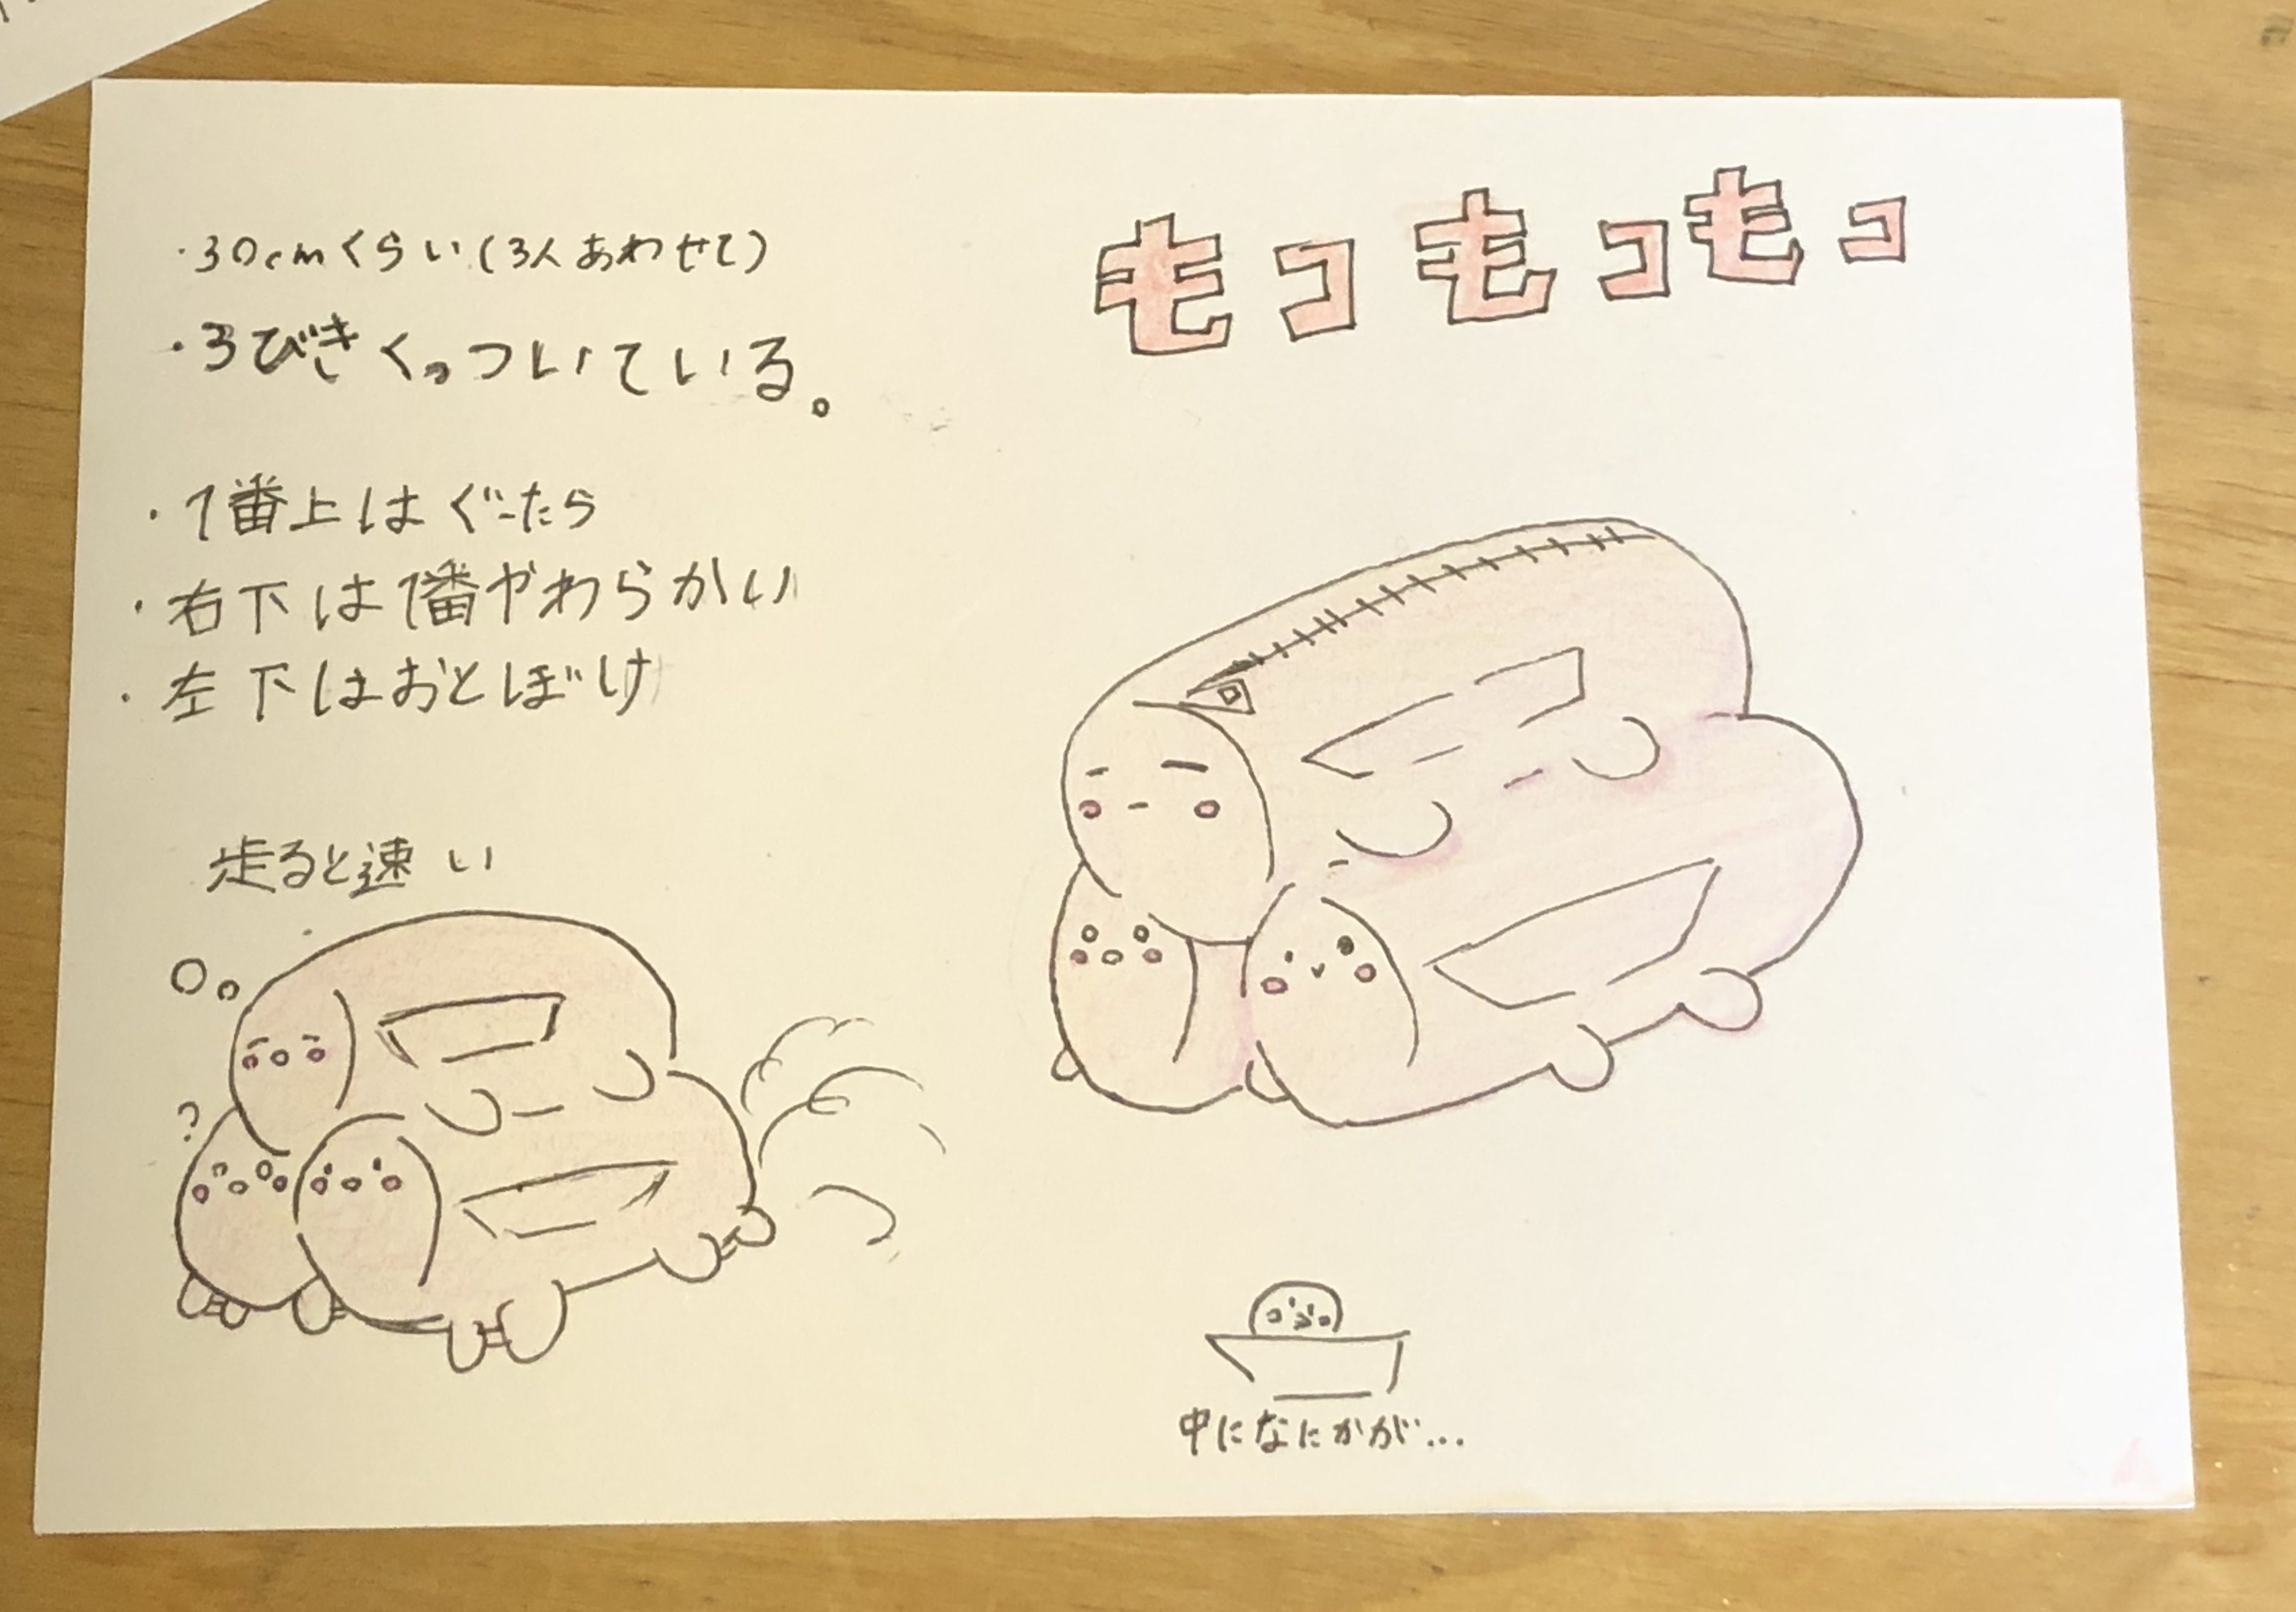 モコモコモコ
・30cmくらい(3人あわせて)
・3びきくっついている。
・1番上はぐーたら
・右下は1番やわらかい
・左下はおとぼけ
走ると速い
?
中になにかが...